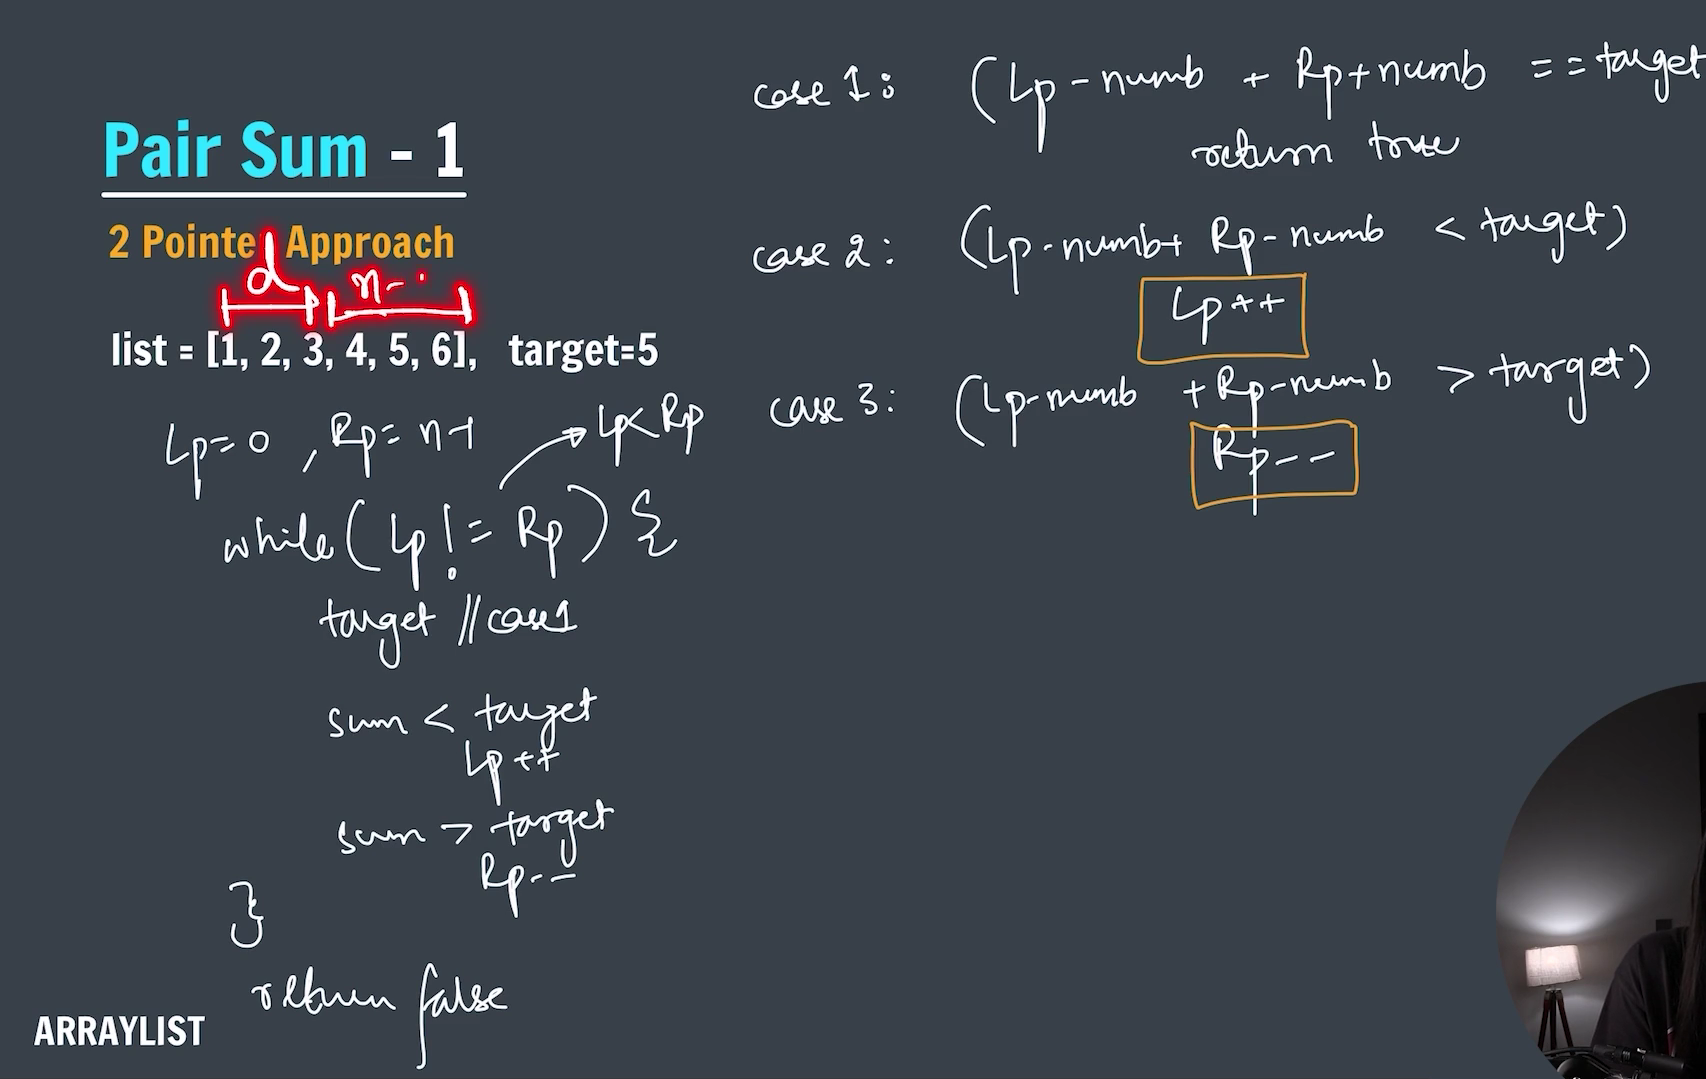 Pair Sum - 1
2 Pointe Approach
d n-
list = [1, 2, 3, 4, 5, 6], target=5
Lp=0 , Rp= n-1
Lp<Rp
while( Lp != Rp ) {
target //case1
sum < target
Lp++
sum > target
Rp--
}
return false
case 1: (Lp-numb + Rp+numb == target
return true
case 2: (Lp-numb+ Rp-numb < target)
Lp++
case 3: (Lp-numb +Rp-numb > target)
Rp--
ARRAYLIST